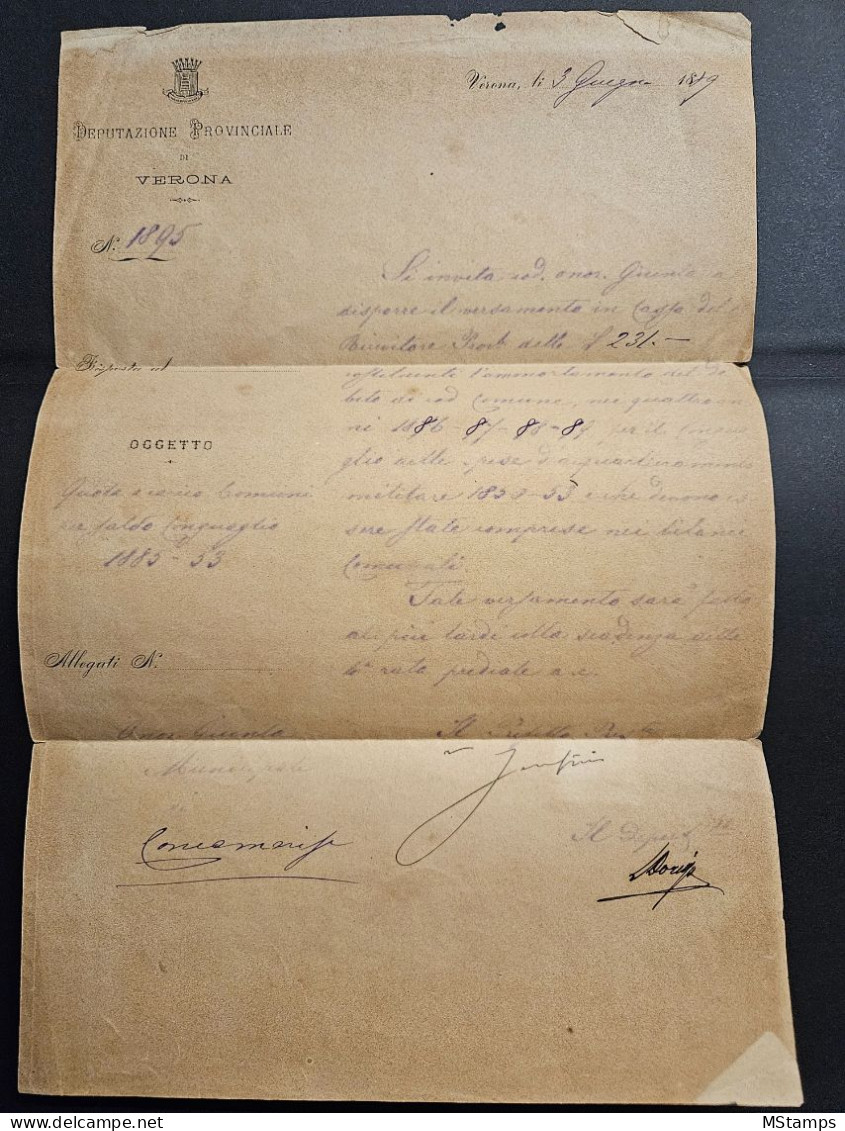 Verona, li 3 Giugno 1889
DEPUTAZIONE PROVINCIALE
DI
VERONA
N. 1895
Si invita cod. onor. Giunta a
disporre il versamento in Cassa del
Ricevitore Prov. delle £ 231.-
costituenti l'ammortamento del de
bito di cod Comune, nei quattro an
ni 1886-87-88-89 per il congua
glio delle spese d'acquartieramento
militare 1850-53 e che devono es
sere state comprese nei bilanci
Comunali.
Tale versamento sarà fatto
al più tardi alla scadenza delle
4ª rata prediale a.c.
Risposta al
OGGETTO
Quota a carico Comuni
per saldo Conguaglio
1885-53
Allegati N.
Onor. Giunta
Municipale
di
Concamarise
Il Prefetto
Il Deput
MStamps